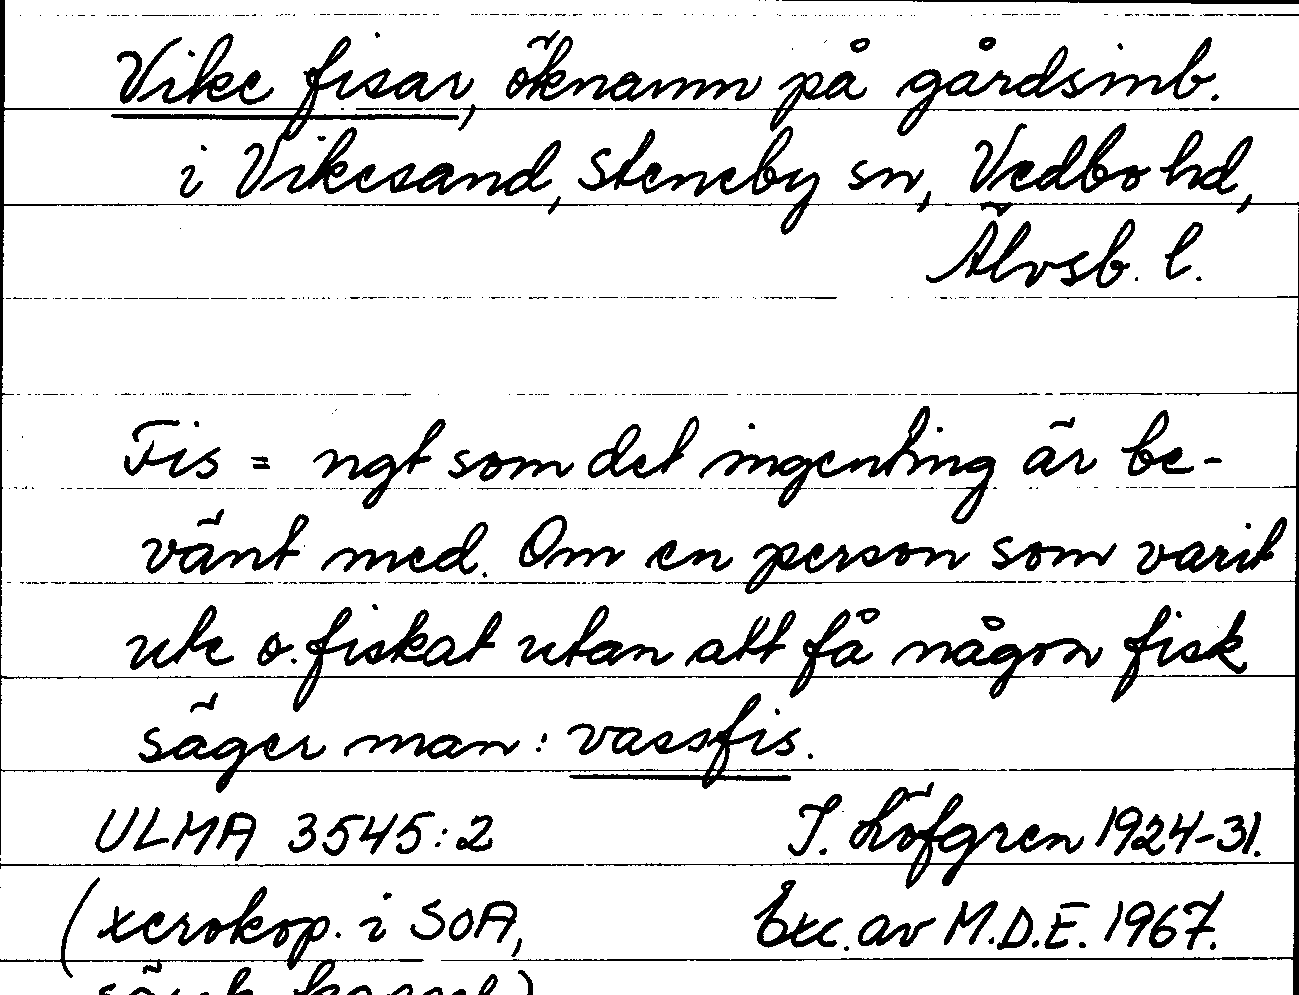 Vike fisar, öknamn på gårdsinb.
i Vikesand, Steneby sn, Vedbo hd,
Älvsb. l.
Fis = ngt som det ingenting är be-
vänt med. Om en person som varit
ute o. fiskat utan att få någon fisk
säger man: vassfis.
ULMA 3545:2
T. Löfgren 1924-31.
(xerokop. i SOA,
Exc. av M.D.E. 1967.